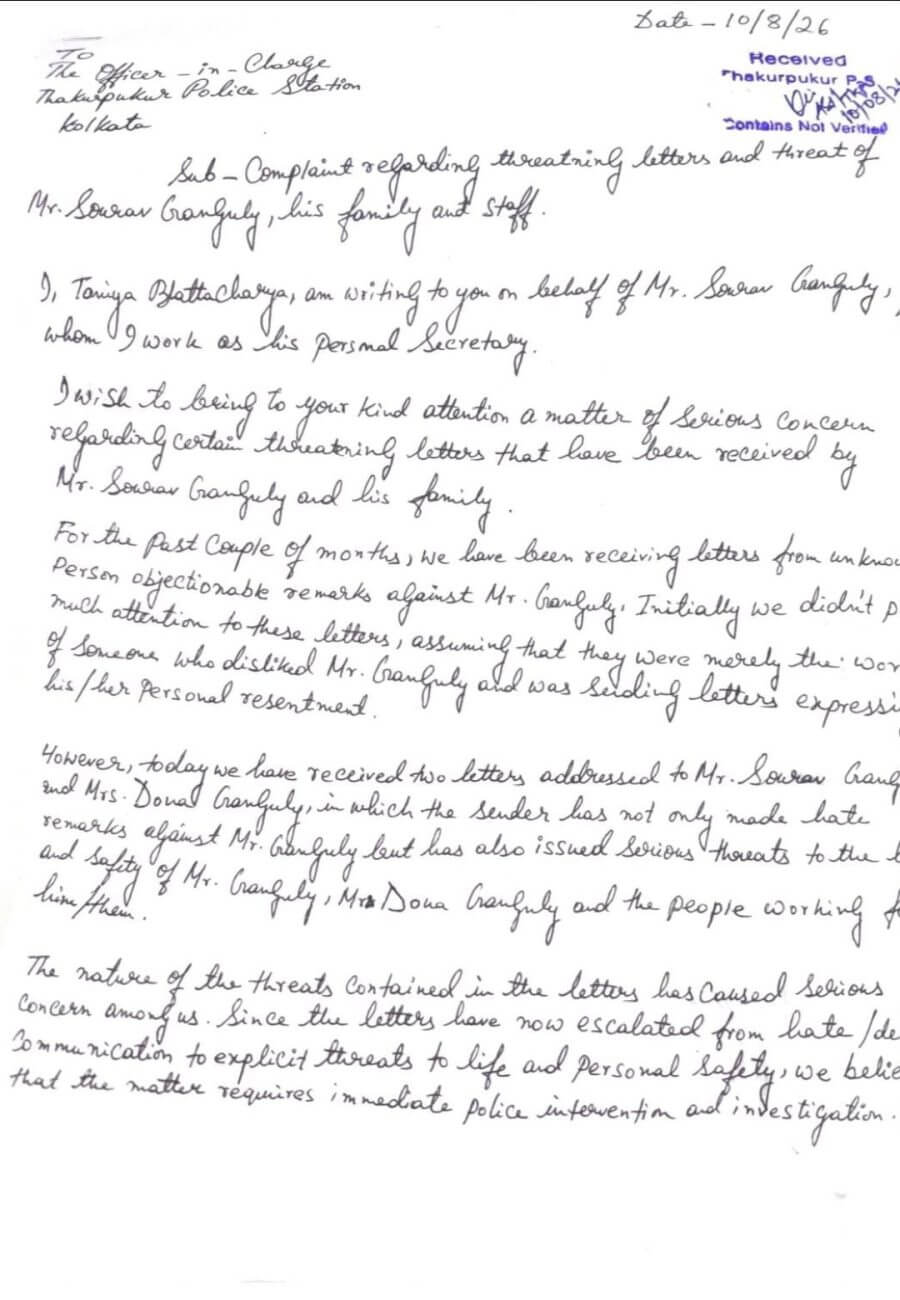 Date - 10/8/26
To
The Officer-in-Charge
Thakurpukur Police Station
Kolkata
Received
Thakurpukur P.S.
10/08/2
Contains Not Verified
Sub - Complaint regarding threatning letters and threat of
Mr. Sourav Ganguly, his family and staff.
I, Taniya Bhattacharya, am writing to you on behalf of Mr. Sourav Ganguly,
whom I work as his Personal Secretary.
I wish to bring to your kind attention a matter of serious concern
regarding certain threatening letters that have been received by
Mr. Sourav Ganguly and his family.
For the past couple of months, we have been receiving letters from unknow
Person objectionable remarks against Mr. Ganguly. Initially we didn't p
much attention to these letters, assuming that they were merely the wor
of someone who disliked Mr. Ganguly and was sending letters expressi
his/her personal resentment.
However, today we have received two letters addressed to Mr. Sourav Gang
and Mrs. Dona Ganguly, in which the sender has not only made hate
remarks against Mr. Ganguly but has also issued serious threats to the l
and safity of Mr. Ganguly, Mrs Dona Ganguly and the people working f
him/them.
The nature of the threats contained in the letters has caused serious
concern among us. Since the letters have now escalated from hate /de
Communication to explicit threats to life and personal safety, we belie
that the matter requires immediate police intervention and investigation.